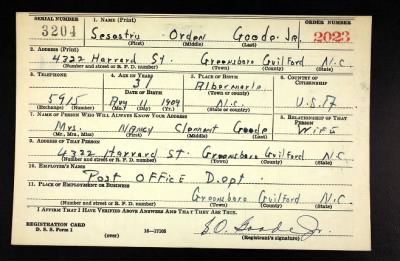 SERIAL NUMBER 1. NAME (Print) ORDER NUMBER
3204 Sesostris Orden Goode Jr. 2023
(First) (Middle) (Last)
2. ADDRESS (Print)
4322 Harvard St. Greensboro Guilford N.C.
(Number and street or R. F. D. number) (Town) (County) (State)
3. TELEPHONE 4. AGE IN YEARS 5. PLACE OF BIRTH 6. COUNTRY OF CITIZENSHIP
37 Albermarle
DATE OF BIRTH (Town or county)
5915 Aug 11 1909 N.C. U.S.A
(Exchange) (Number) (Mo.) (Day) (Yr.) (State or country)
7. NAME OF PERSON WHO WILL ALWAYS KNOW YOUR ADDRESS 8. RELATIONSHIP OF THAT PERSON
Mrs. Nancy Clement Goode Wife
(Mr., Mrs., Miss) (First) (Middle) (Last)
9. ADDRESS OF THAT PERSON
4322 Harvard St. Greensboro Guilford N.C.
(Number and street or R. F. D. number) (Town) (County) (State)
10. EMPLOYER'S NAME
Post Office Dept.
11. PLACE OF EMPLOYMENT OR BUSINESS
Greensboro Guilford N.C.
(Number and street or R. F. D. number) (Town) (County) (State)
I AFFIRM THAT I HAVE VERIFIED ABOVE ANSWERS AND THAT THEY ARE TRUE.
REGISTRATION CARD
D. S. S. Form 1 (over) 16—17105 S.O. Goode Jr.
(Registrant's signature)